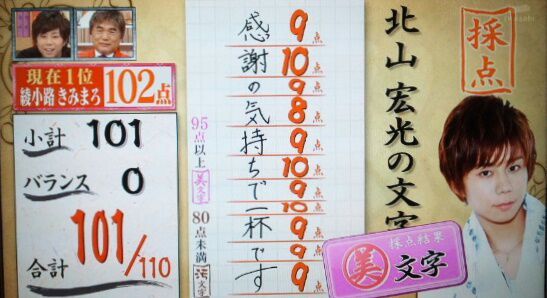 採点
北山 宏光の文字
感謝の気持ちで一杯です
9点
10点
9点
8点
9点
10点
9点
10点
9点
9点
9点
95点以上 美文字
80点未満 汚文字
現在1位
綾小路 きみまろ 102点
小計 101
バランス 0
合計 101/110
採点結果
美文字